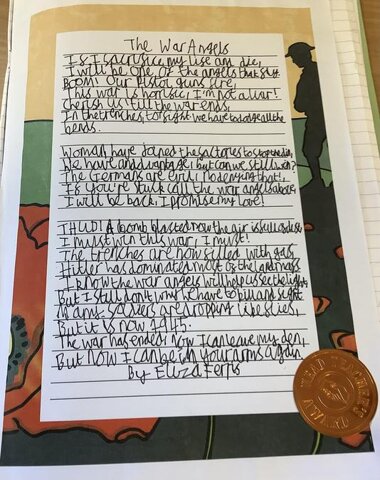 The War Angels
If I sacrifice my life and die,
I will be one of the angels that fly.
BOOM! Our pistol guns fire,
This war is horific, I'm not a liar!
Cherish us 'till the war ends,
In the trenches to fight we have to dodge all the
bends.
Woman have joined the factories to stop the din,
We have and advantage, but can we still win?
The Germans are evil, no denying that,
If you're stuck call the war angels above,
I will be back, I promise my love!
THUD! A bomb blasted now the air is full of dust
I must win this war, I must!
The trenches are now filled with gas,
Hitler has dominated most of the land mass
I know the war angels will help us see the light,
But I still don't why we have to kill and fight
Many soldiers are dropping like flies,
But it is now 1945.
The war has ended now I can leave my den,
But now I can be in your arms again
By Eliza Ferris
HEAD TEACHER'S AWARD